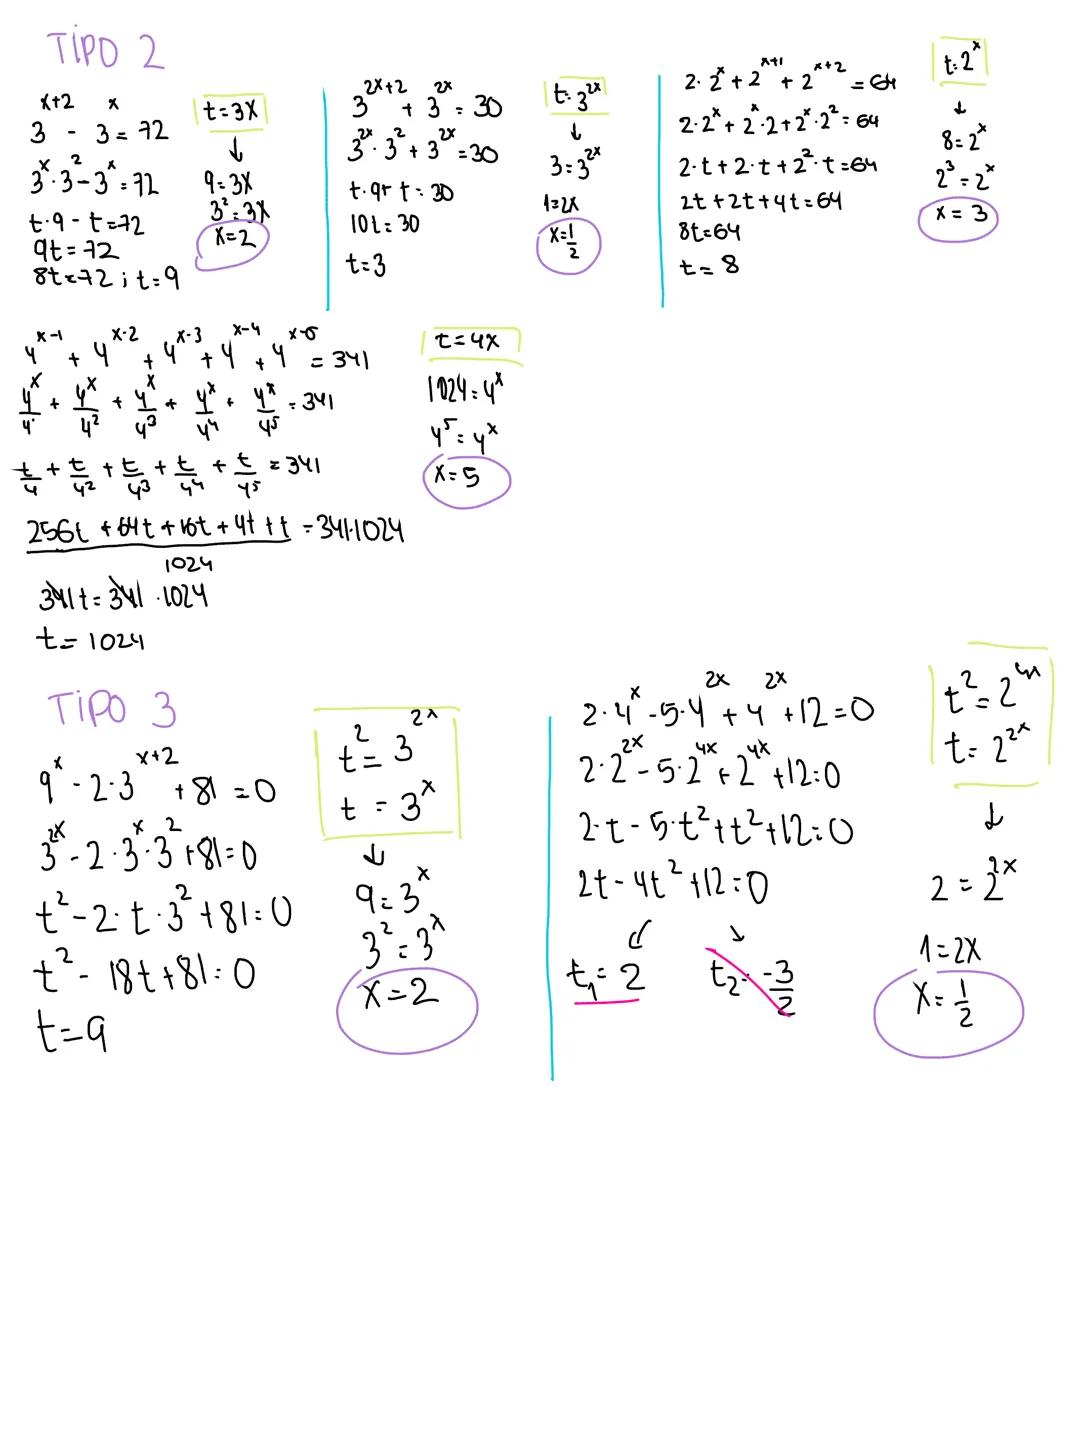 TIPO 2
3^{x+2} - 3^x = 72
3^x · 3^2 - 3^x = 72
t · 9 - t = 72
9t = 72
8t = 72 ; t = 9
t = 3x
↓
9 = 3x
3^2 = 3x
x = 2
3^{2x+2} + 3^{2x} = 30
3^{2x} · 3^2 + 3^{2x} = 30
t · 9 + t = 30
10t = 30
t = 3
t = 3^{2x}
↓
3 = 3^{2x}
1 = 2x
x = 1/2
2 · 2^x + 2^{x+1} + 2^{x+2} = 64
2 · 2^x + 2^x · 2 + 2^x · 2^2 = 64
2 · t + 2 · t + 2^2 · t = 64
2t + 2t + 4t = 64
8t = 64
t = 8
t = 2^x
↓
8 = 2^x
2^3 = 2^x
x = 3
4^{x-1} + 4^{x-2} + 4^{x-3} + 4^{x-4} + 4^{x-5} = 341
4^x/4^1 + 4^x/4^2 + 4^x/4^3 + 4^x/4^4 + 4^x/4^5 = 341
t/4 + t/4^2 + t/4^3 + t/4^4 + t/4^5 = 341
256t + 64t + 16t + 4t + t = 341 · 1024
1024
341t = 341 · 1024
t = 1024
t = 4x
1024 = 4^x
4^5 = 4^x
x = 5
TIPO 3
9^x - 2 · 3^{x+2} + 81 = 0
3^{2x} - 2 · 3^x · 3^2 + 81 = 0
t^2 - 2 · t · 3^2 + 81 = 0
t^2 - 18t + 81 = 0
t = 9
t^2 = 3^{2x}
t = 3^x
↓
9 = 3^x
3^2 = 3^x
x = 2
2 · 4^x - 5 · 4^{2x} + 4^{2x} + 12 = 0
2 · 2^{2x} - 5 · 2^{4x} + 2^{4x} + 12 = 0
2 · t - 5 · t^2 + t^2 + 12 = 0
2t - 4t^2 + 12 = 0
↓ ↓
t_1 = 2 t_2 = -3/2
t^2 = 2^{4x}
t = 2^{2x}
↓
2 = 2^{2x}
1 = 2x
x = 1/2